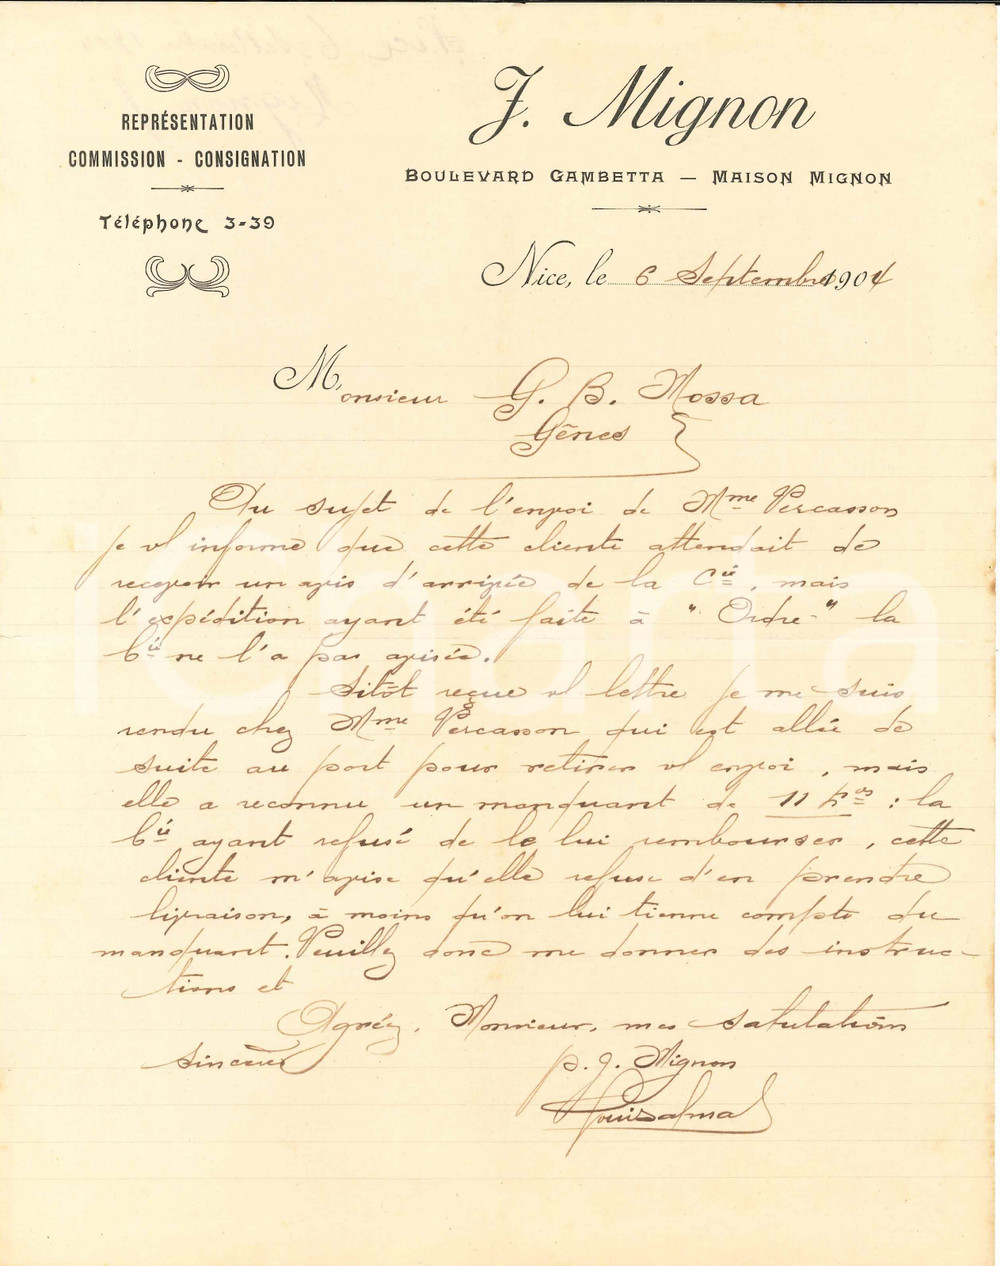 REPRÉSENTATION
COMMISSION - CONSIGNATION
Téléphone 3-39
J. Mignon
BOULEVARD GAMBETTA — MAISON MIGNON
Nice, le 6 Septembre 1904
Monsieur G. B. Mossa
Gênes
Au sujet de l'envoi de Mme Percasson
je vs informe que cette cliente attendait de
recevoir un avis d'arrivée de la Cie, mais
l'expédition ayant été faite à "Ordre" la
Cie ne l'a pas avisée.
Sitôt reçue vs lettre je me suis
rendu chez Mme Percasson qui est allée de
suite au port pour retirer vs envoi, mais
elle a reconnu un manquant de 11 Kos : la
Cie ayant refusé de le lui rembourser, cette
cliente m'avise qu'elle refuse d'en prendre
livraison, à moins qu'on lui tienne compte du
manquant. Veuillez donc me donner des instruc-
tions et
Agréez, Monsieur, mes salutations
sincères
p. J. Mignon
l'Charta